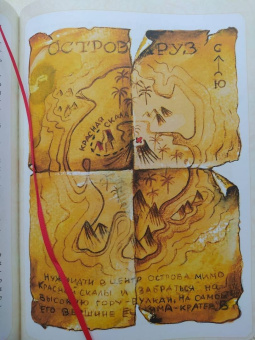 ОСТРОВ РУЗ
С
Ю
КРАСНАЯ
СКАЛА
ИДТИ В ЦЕНТР ОСТРОВА МИМО
КРАСНОЙ СКАЛЫ И ЗАБРАТЬСЯ НА
ВЫСОКУЮ ГОРУ-ВУЛКАН, НА САМОЙ
ЕГО ВЕРШИНЕ ЕСТЬ ЯМА-КРАТЕР. В